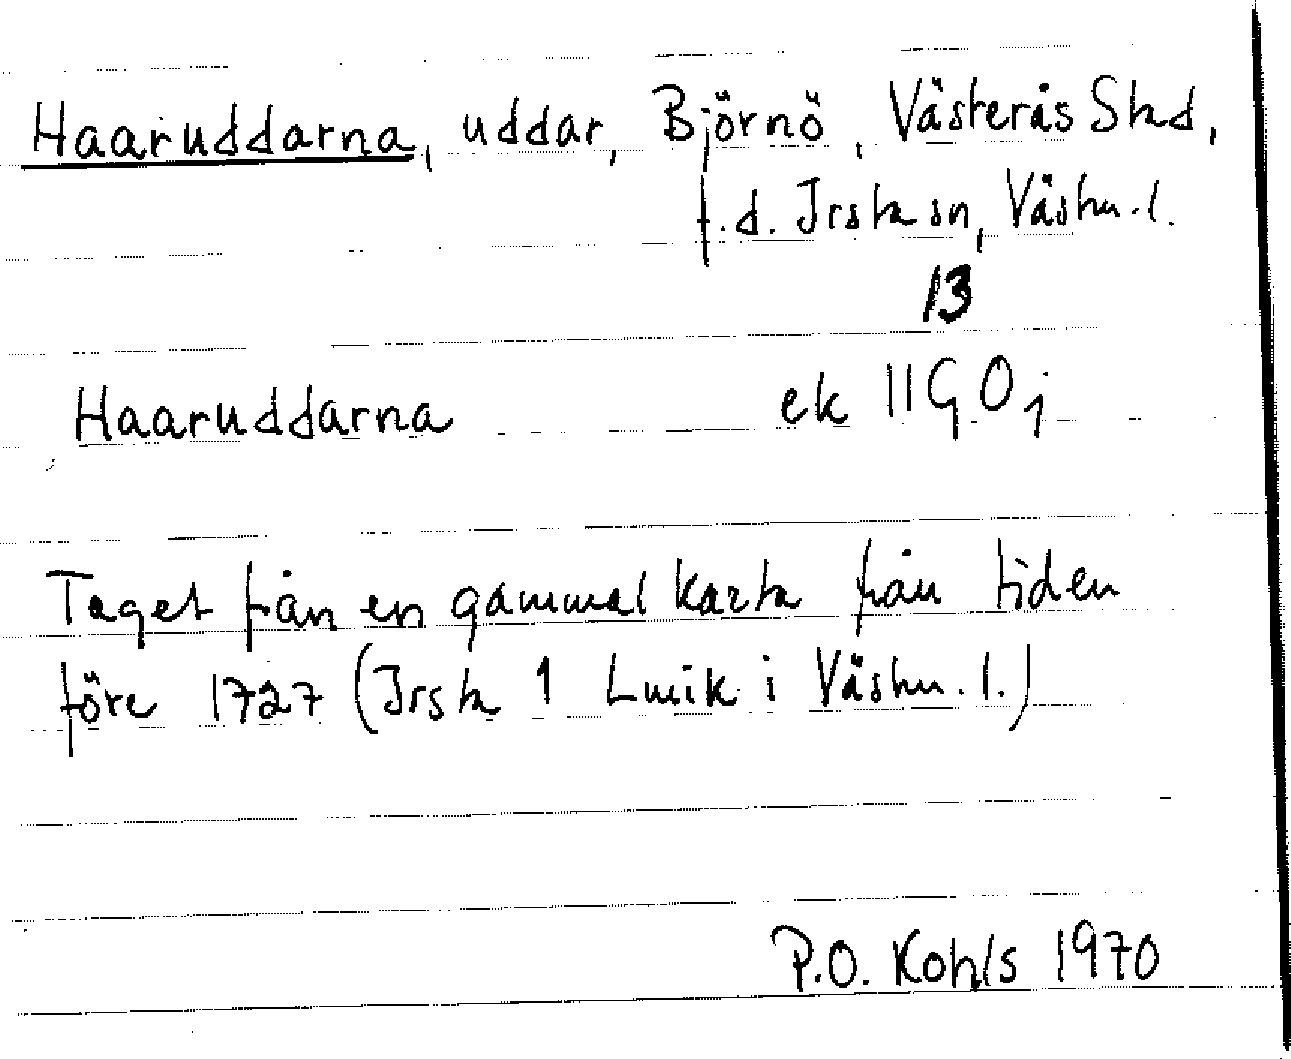 Haaruddarna, uddar, Björnö, Västerås Stad,
f.d. Irsta sn, Västm.l.
13
Haaruddarna ek 11G 0j
Taget från en gammal karta från tiden
före 1727 (Irsta 1 Lmik i Västm.l.)
P.O. Kohls 1970